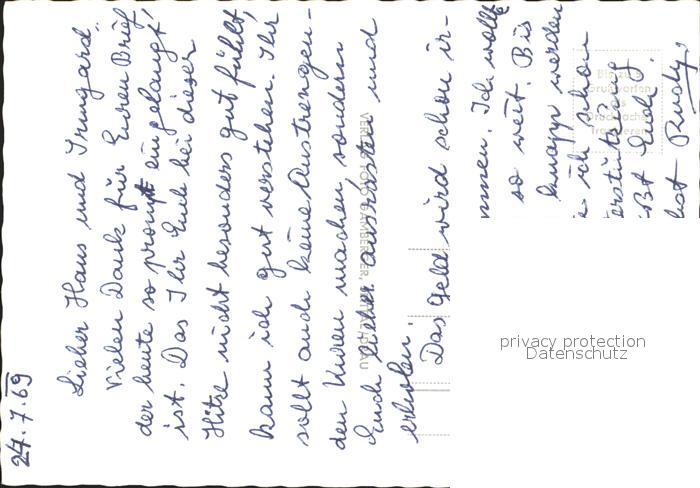 24.7.69
Lieber Hans und Irmgard.
Vielen Dank für Euren Brief
der heute so prompt eingelangt
ist. Das Ihr Euch bei dieser
Hitze nicht besonders gut fühlt,
kann ich gut verstehen. Ihr
sollt auch keine Anstrengen-
den Kuren machen, sondern
Euch lieber ausrasten und
erholen.
Das Geld wird schon ir-
mmen. Ich wollt
so weit. Bis
knapp werden
ich schon
erstützung
ßt Euch.
Rudy.
privacy protection
Datenschutz